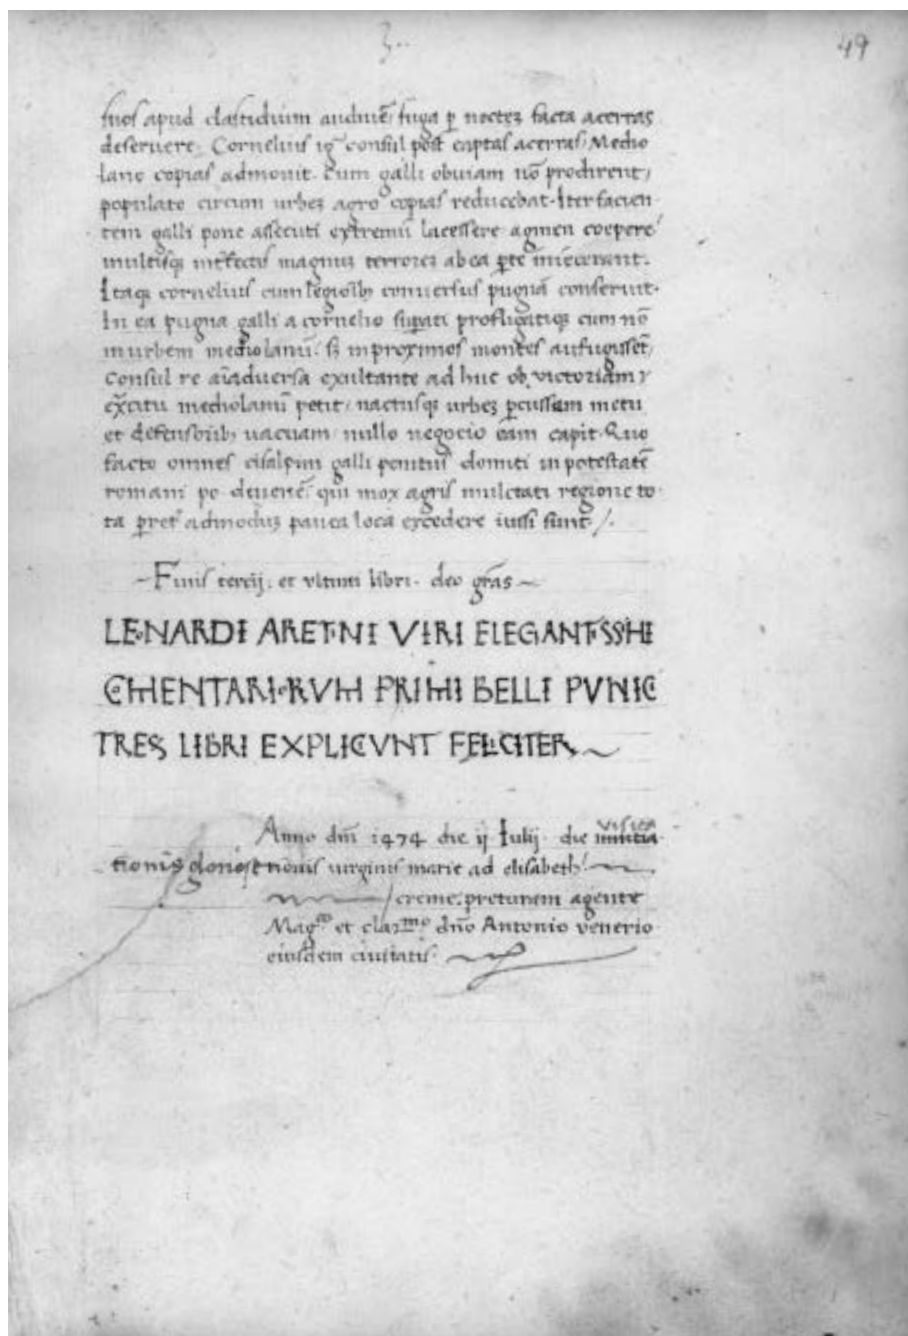 49
suos apud clastidium audiuē fuga ꝑ nocteꝫ facta acerras
deseruere. Cornelius igr̃ consul post captas acerras / Medio
lano copias admouit. Cum galli obuiam nō prodirent /
populato circum urbeꝫ agro copias reducebat. Iter facien
tem galli pone assecuti extremū lacessere agmen coepere /
multisqꝫ int̃fectis magnuꝫ terroreꝫ ab ea ꝑte iniecerant.
Itaqꝫ cornelius cum legioībꝫ conuersus pugnā conseruit.
In ea pugna galli a cornelio suꝑati profligatiqꝫ cum nō
in urbem mediolanū. sꝫ in proximos montes aufugissēt /
Consul re aīaduersa exultante ad huc ob uictoriam
exc̃itu mediolanū petit / nactusqꝫ urbeꝫ ꝑcussam metu
et defensoribꝫ uacuam nullo negocio eam capit. Quo
facto omnes cisalpini galli penitus domiti in potestatē
romani po. deuenē. qui mox agris mulctati regione to
ta p̱ret̃ admoduꝫ pauca loca excedere iussi sunt /.
Finis tercij. et vltimi libri. deo gr̃as
LEONARDI ARETINI VIRI ELEGANTISSIMI
COMENTARIORVM PRIMI BELLI PVNIC
TRES LIBRI EXPLICVNT FELICITER
Anno dn̄i 1474 die ij Iulij. die nuntia visita
tionis gloriose tionis uirginis marie ad elisabeth
creme. preturam agente
Mag.co et clar.mo dn̄o Antonio venerio
eiusdem ciuitatis.